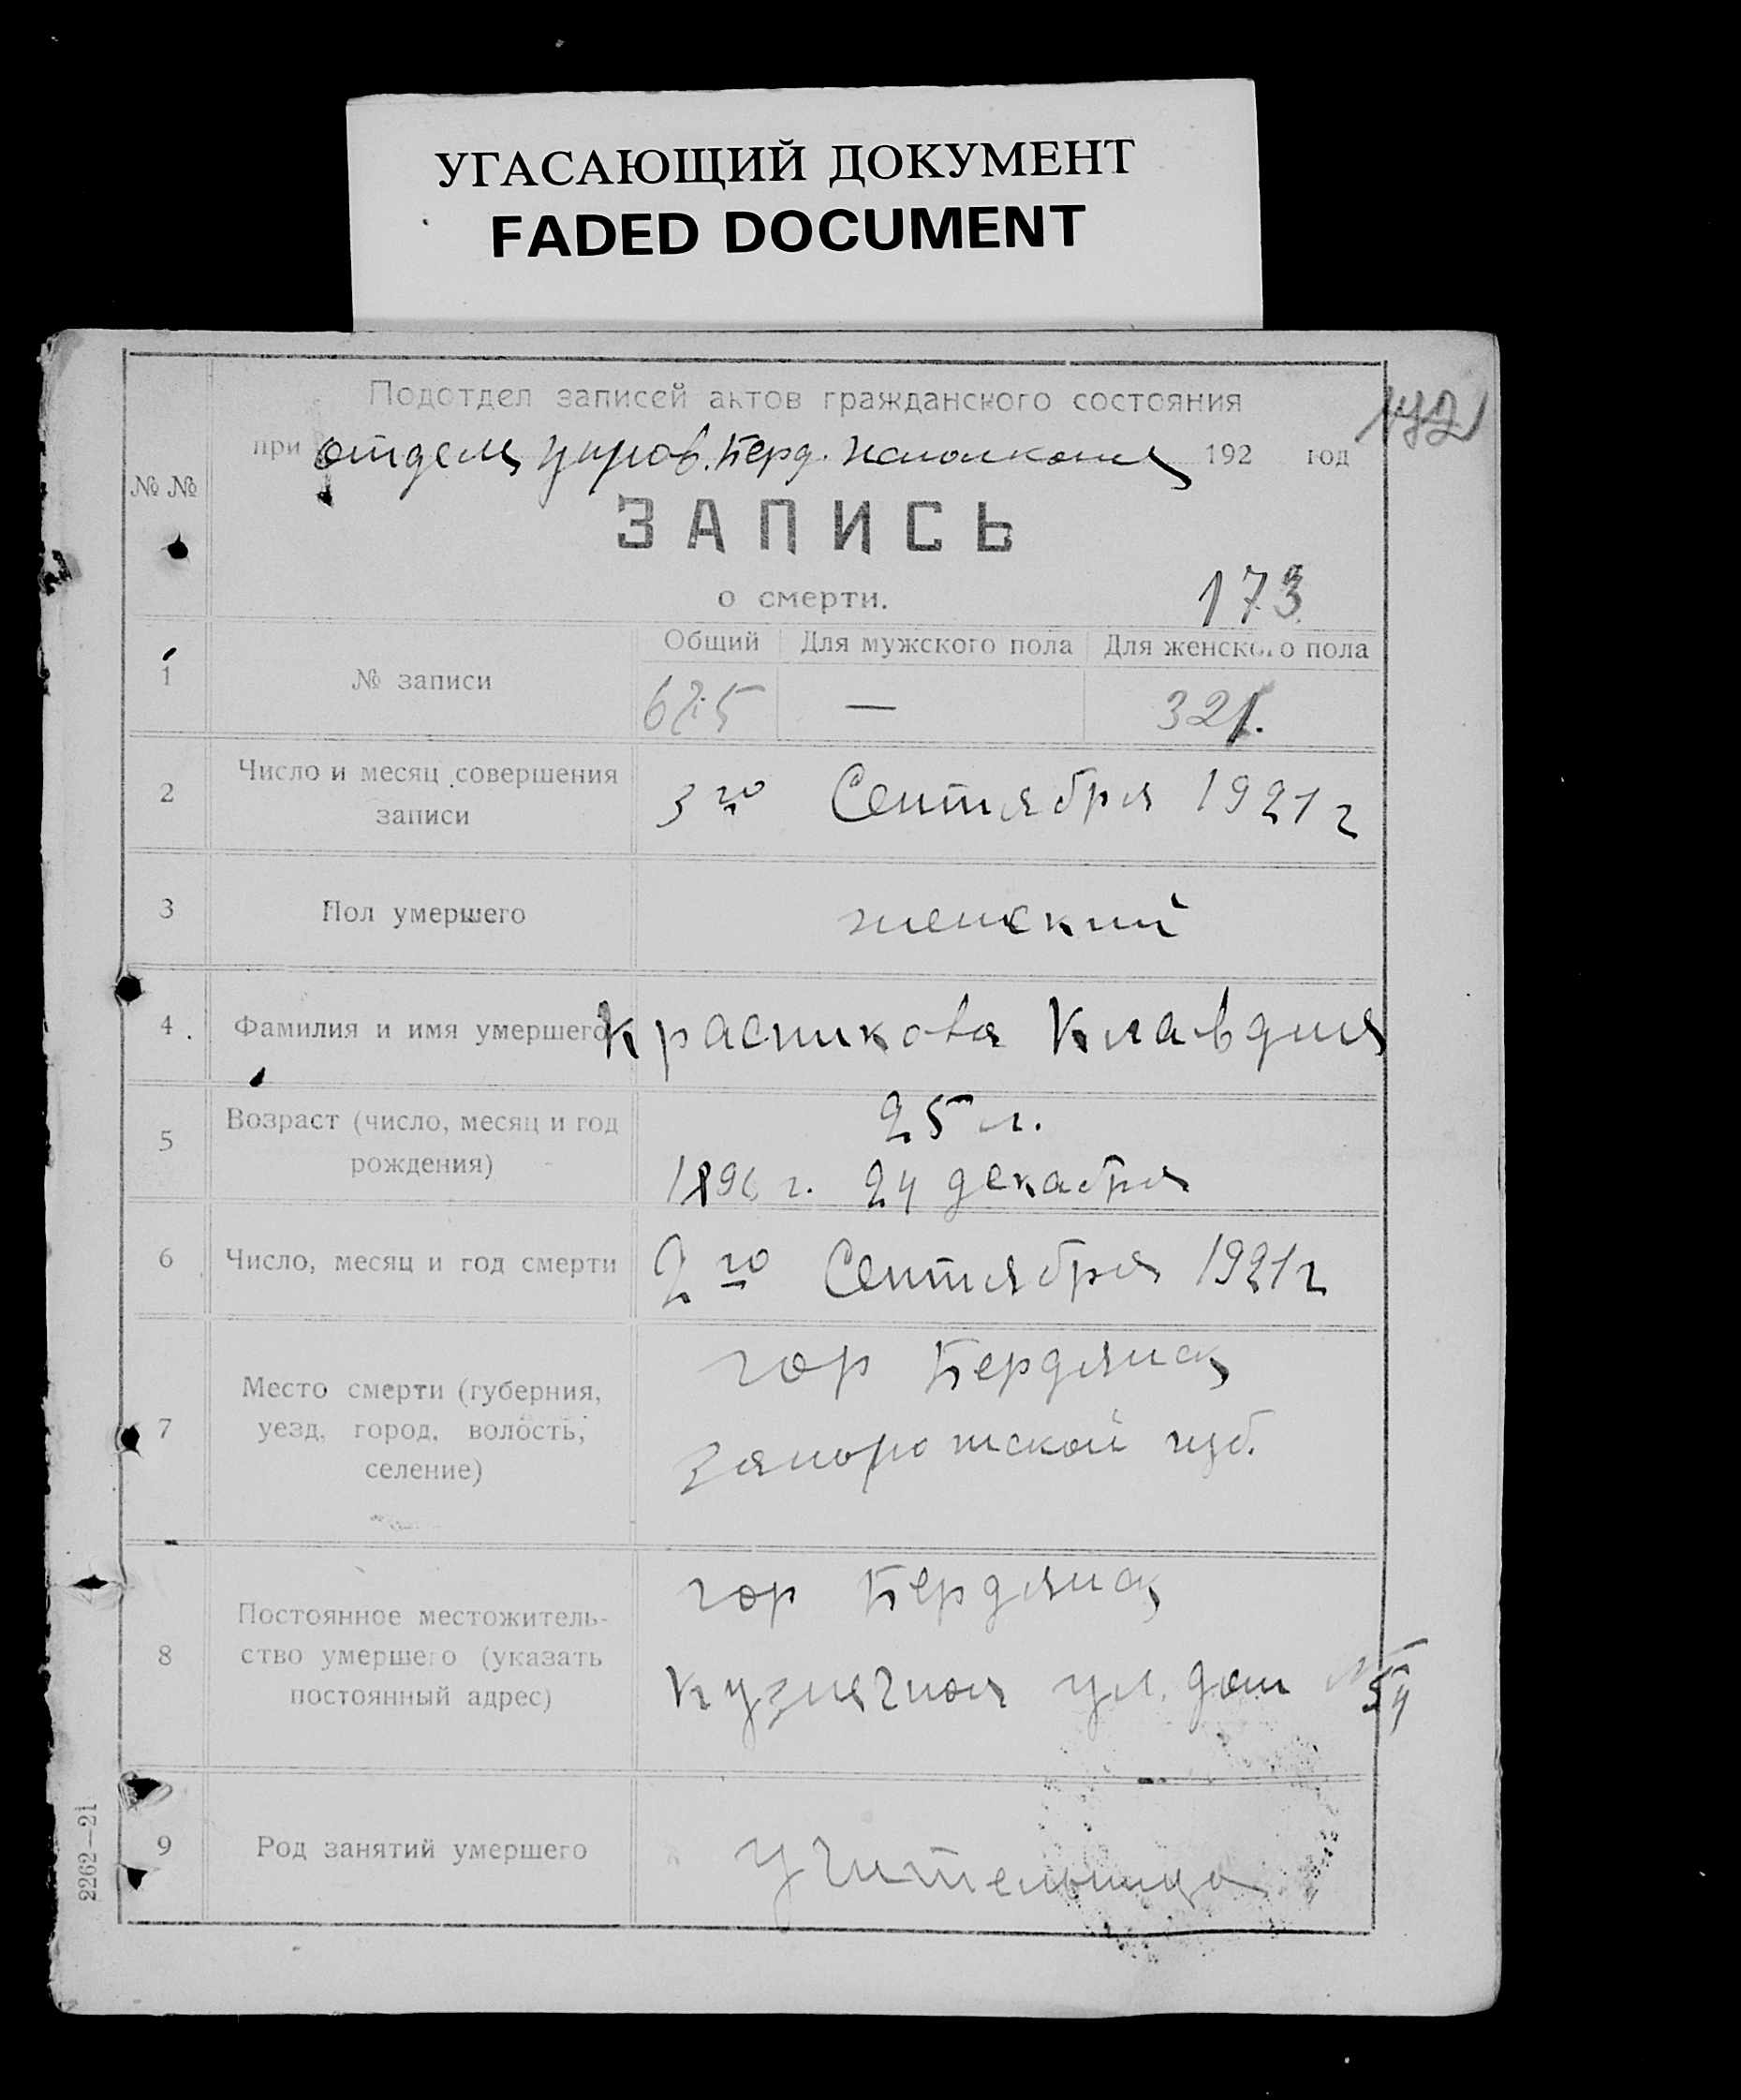 УГАСАЮЩИЙ ДОКУМЕНТ
FADED DOCUMENT
Подотдел записей актов гражданского состояния
при отделе управ. Берд. исполкома 192 год
№ №
ЗАПИСЬ
о смерти.
173
Общий Для мужского пола Для женского пола
1 № записи — 321.
2 Число и месяц совершения
записи
3го Сентября 1921 г
3 Пол умершего женский
4 Фамилия и имя умершего Красникова Клавдия
5 Возраст (число, месяц и год
рождения)
25 л.
1896 г. 24 декабря
6 Число, месяц и год смерти 2го Сентября 1921 г
7 Место смерти (губерния,
уезд, город, волость,
селение)
гор Бердянск
Запорожской губ.
8 Постоянное местожитель-
ство умершего (указать
постоянный адрес)
гор Бердянск
Кузнечная ул. дом № 54
9 Род занятий умершего учительница
2262—21